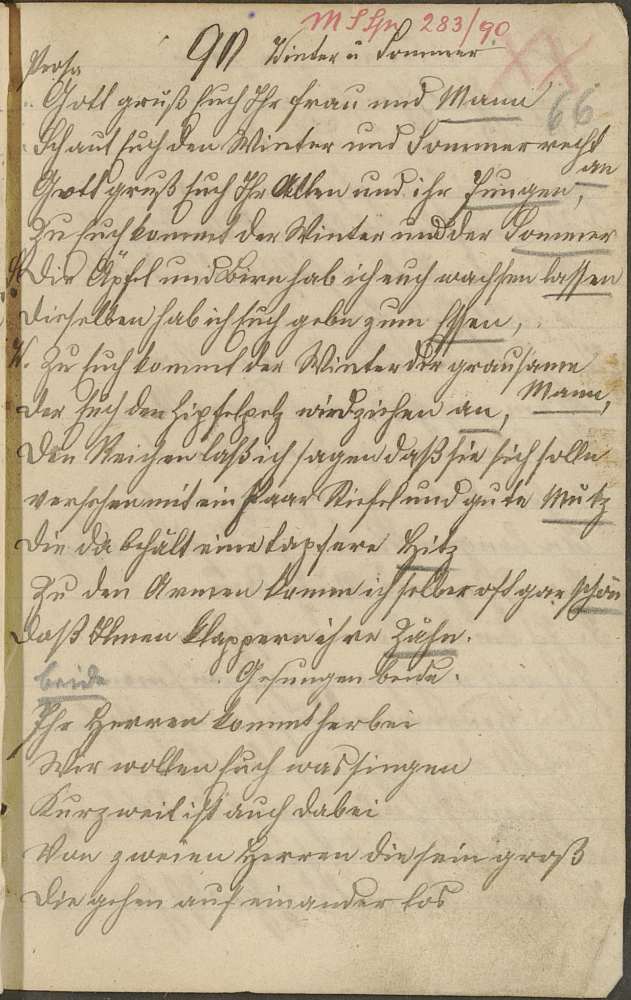 M S Hs 283/90
90 Winter u Sommer
Prosa
66
Gott grüß Euch Ihr Frau und Mann
Schaut Euch den Winter und Sommer recht an
Gott grüß Euch Ihr Alten und ihr Jungen,
Zu Euch kommt der Winter und der Sommer
S. Die Äpfel und Birn hab ich euch wachsen lassen
Dieselben hab ich Euch gebn zum Essen,
W. Zu Euch kommt der Winter der grausame Mann,
Der Euch den Zipfelpelz wird ziehen an,
Den Reichen laß ich sagen daß sie sich solln
versehen mit ein Paar Stiefel und gute Mütz
Die da behält eine tapfere Hitz
Zu den Armen komm ich selber oft gar schön
Daß Ihnen klappern ihre Zähn.
beide
Gesungen beide.
Ihr Herren kommt herbei
Wir wollen Euch was singen
Kurzweil ist auch dabei
Von zweien Herren die sein groß
Die gehen auf einander los